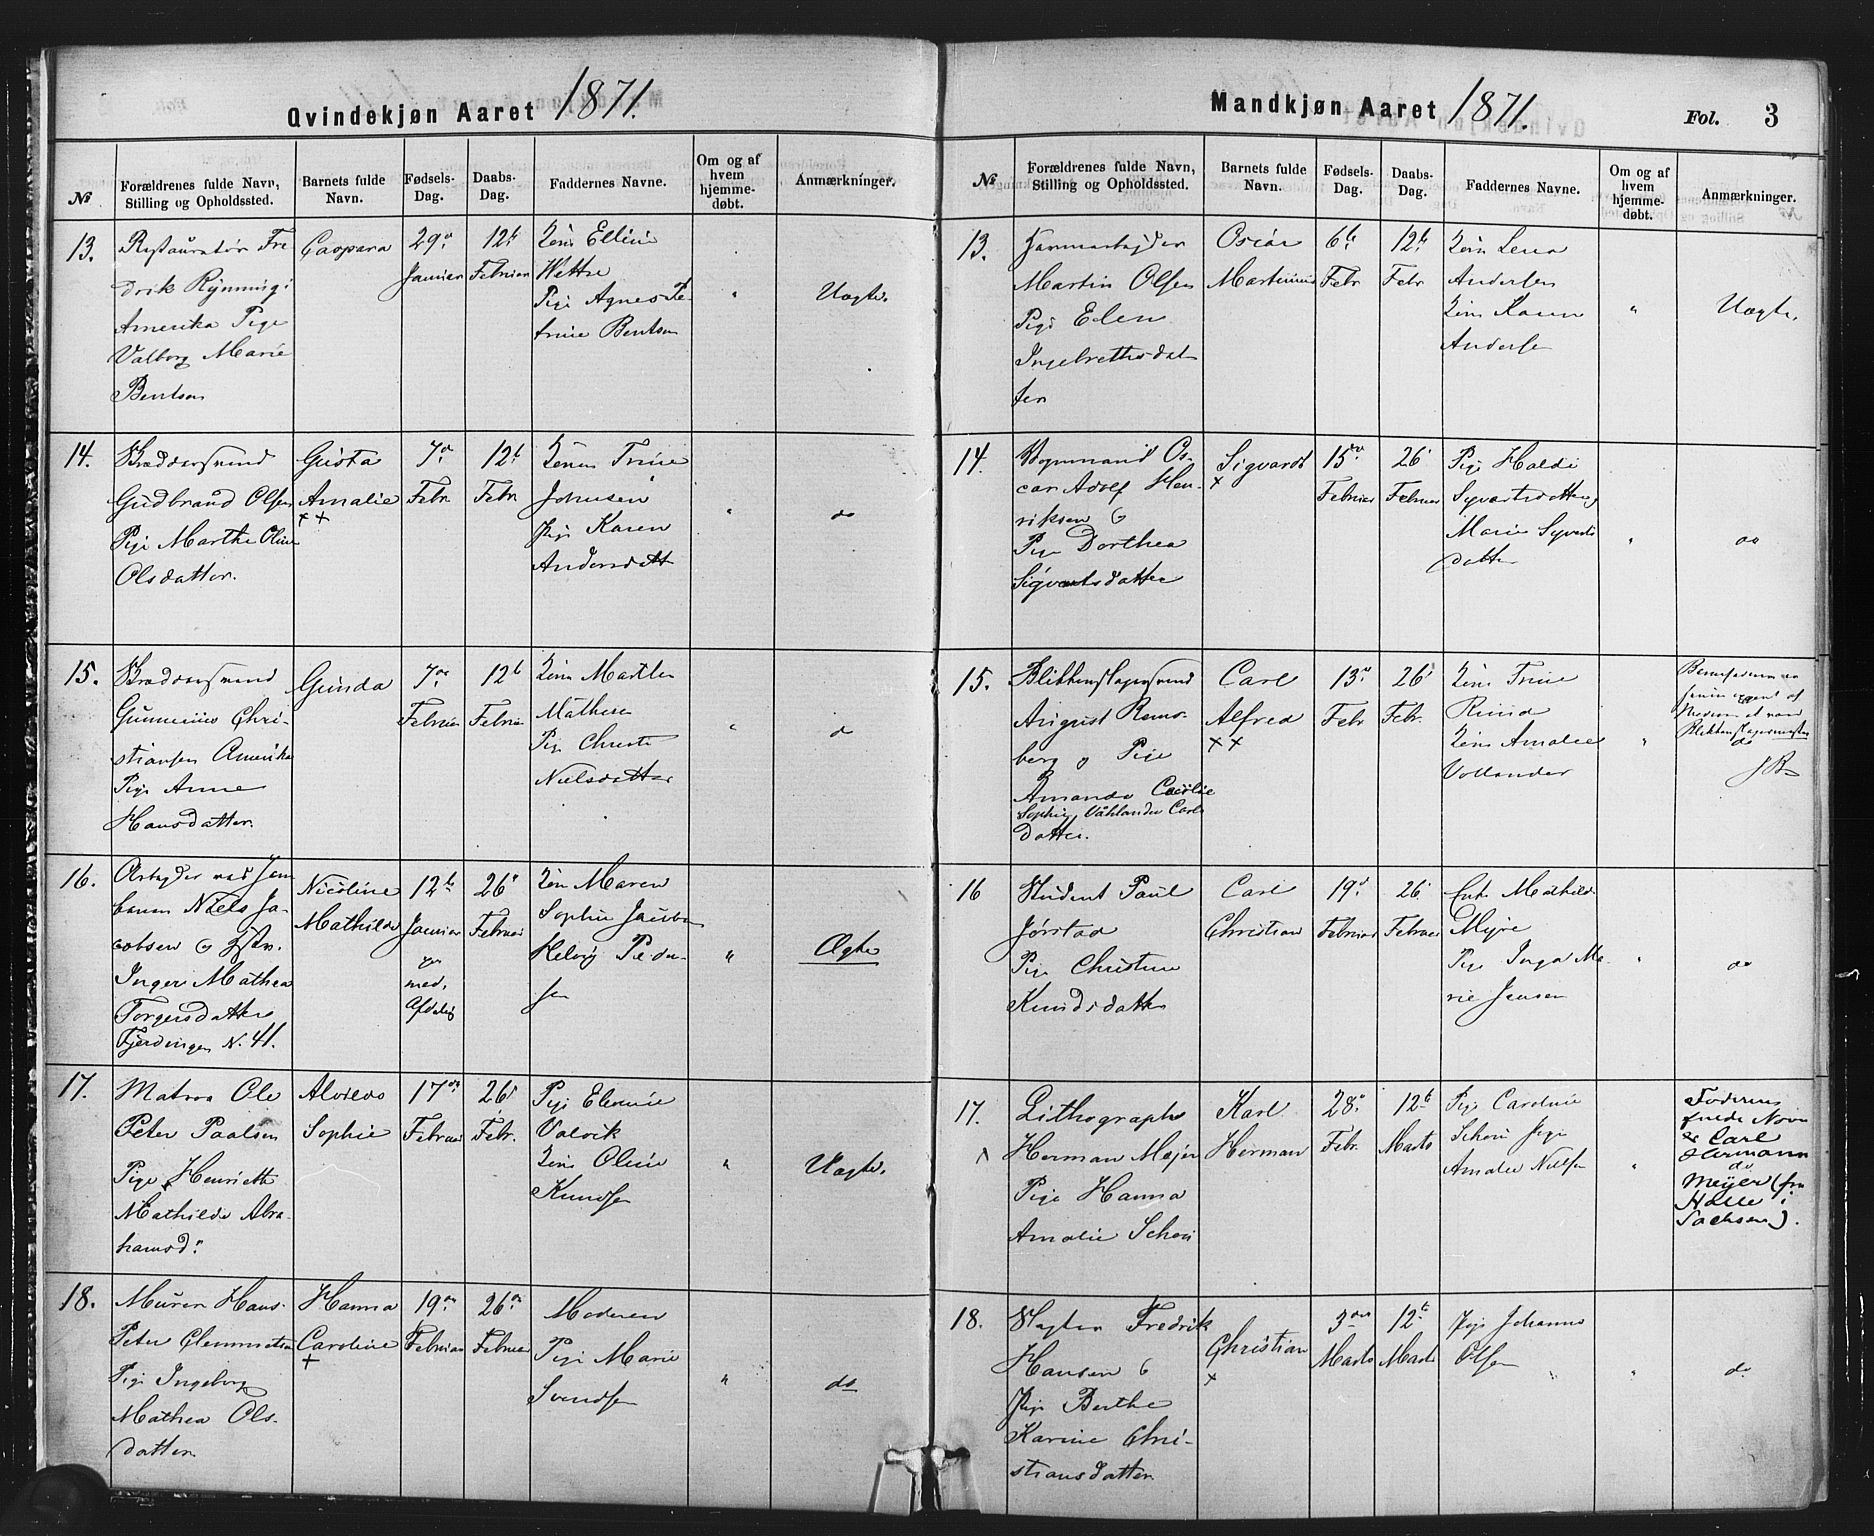 Qvindekjøn Aaret 1871.
№
Forældrenes fulde Navn, Stilling og Opholdssted.
Barnets fulde Navn.
Fødsels-Dag.
Daabs-Dag.
Faddernes Navne.
Om og af hvem hjemme-døbt.
Anmærkninger.
13.
Restauratør Fre
drik Rynning i
Amerika Pige
Valborg Marie
Bentsen
Caspara
29
Januar
12
Februar
Elline
Wettre
Pige Agnes Pe
trine Bentsen
"
Uægte.
14.
Gudbrand Olsen
Pige Marthe Oline
Olsdatter.
Gusta
Amalie
××
7
Febr.
12
Febr.
Trine
Johnsen
Pige Karen
Andersdatt
"
do
15.
Gunnerius Chri-
stiansen Amerika
Pige Anne
Hansdatter.
Gunda
7
Februar
12
Februar
Mathea
Mathesen
Pige Christi
Nielsdatter
"
do
16.
Arbeyder ved Jern
banen Niels Ja-
cobsen og Hstr.
Inger Mathea
Torgersdatter
Fjerdingen N. 41.
Nicoline
Mathilde
12
Januar
26
Februar
Maren
Sophie Jacobsen
Helvig Peder-
sen
"
Ægte
17.
Matros Ole
Peter Paalsen
Pige Henriette
Mathilde Abra-
hamsd.
Alvilda
Sophie
17
Februar
26
Febr.
Pige Elenrie
Valvik
Oline
Knudsen
"
Uægte.
18.
Murer Hans
Peter Clemmetsen
Pige Ingeborg
Mathea Ols-
datter
Hanna
Caroline
+
19
Februar
26
Februar
Moderen
Pige Marie
Svendsen
"
do
Mandkjøn Aaret 1871.
Fol. 3
№
Forældrenes fulde Navn, Stilling og Opholdssted.
Barnets fulde Navn.
Fødsels-Dag.
Daabs-Dag.
Faddernes Navne.
Om og af hvem hjemme-døbt.
Anmærkninger.
13.
Martin Olsen
Pige Elen
Ingebrethsdat
ter
Oscar
Martinius
6te
Febr
12
Febr
Lena
Andersen
Karen
Andersen
"
Uægte.
14.
Vognmand Os-
car Adolf Hen-
riksen &
Pige Dorthea
Sigvartsdatter
Sigvardt
×
15
Februar
26
Februar
Pige Haldi
Syvertsdatter og
Marie Syverts
datter
"
do
15.
Blikkenslagersvend
August Roms-
berg og Pige
Amanda Cecilie
Sophie Vahlander Carls
datter.
Carl
Alfred
××
13
Febr
26
Febr.
Trine
Rund
Amalie
Vollander
"
do
16
Student Paul
Jørstad
Pige Christine
Knudsdatter
Carl
Christian
19
Februar
26
Februar
Enke Mathilde
Myre
Pige Inga Ma-
rie Jensen
"
do
17.
×
Lithograph
Herman Mejer
Pige Hanna
Amalie Schou
Karl
Herman
28
Febr.
12
Marts
Pige Caroline
Schou Pige
Amalie Nielsen
"
Faderens
fulde Navn
er Carl
Hermann
do
Meyer (fra
Halle i
Sachsen).
18.
Fredrik
Hansen &
Pige Berthe
Karine Chri-
stiansdatter
Christian
×
3
Marts
12
Marts
Pige Johanne
Olsen
"
do